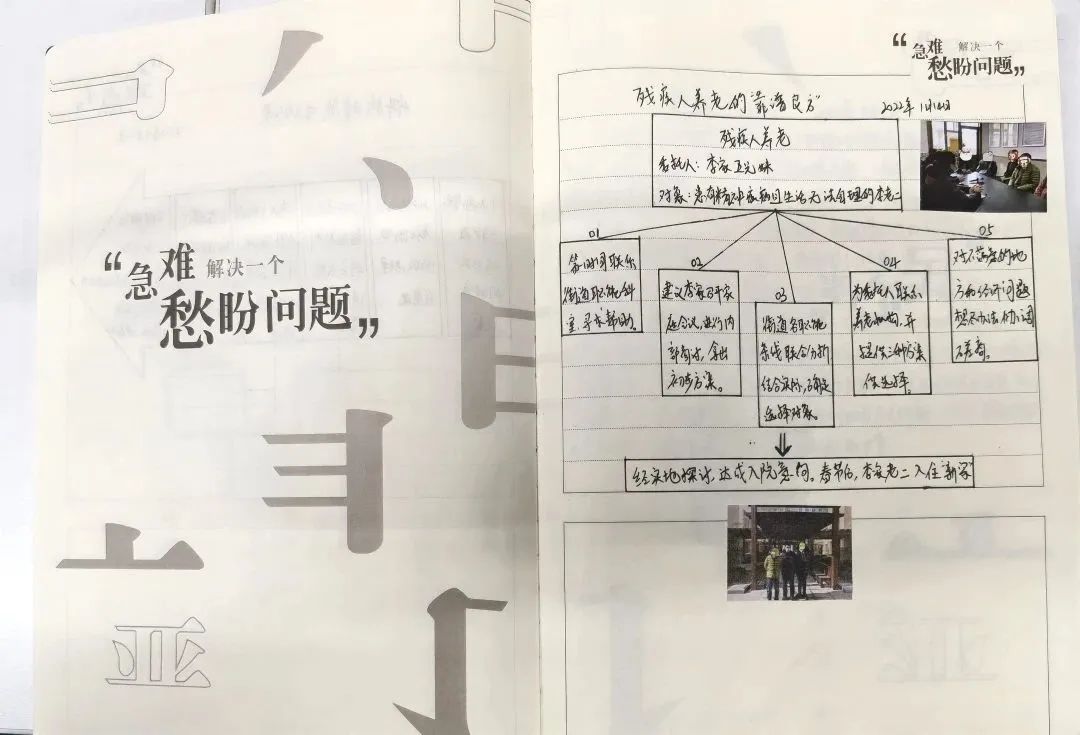 “急难 解决一个
愁盼问题„
亚
“急难 解决一个
愁盼问题„
残疾人养老的“靠谱良方”
2022年1月14日
残疾人养老
委托人：李家五兄妹
对象：患有精神疾病且生活无法自理的李老二
01
第一时间联系
街道职能科
室，寻求帮助。
02
建议李家召开家
庭会议，进行内
部商讨，拿出
初步方案。
03
街道各职能
条线联合分析
结合实际，确定
选择对象。
04
为委托人联系
养老机构，并
提供三种方案
供选择。
05
对不落实的地
方和经济问题
想尽办法协调
改善。
经实地探讨，达成入院意向。春节后，李家老二入住“新家”